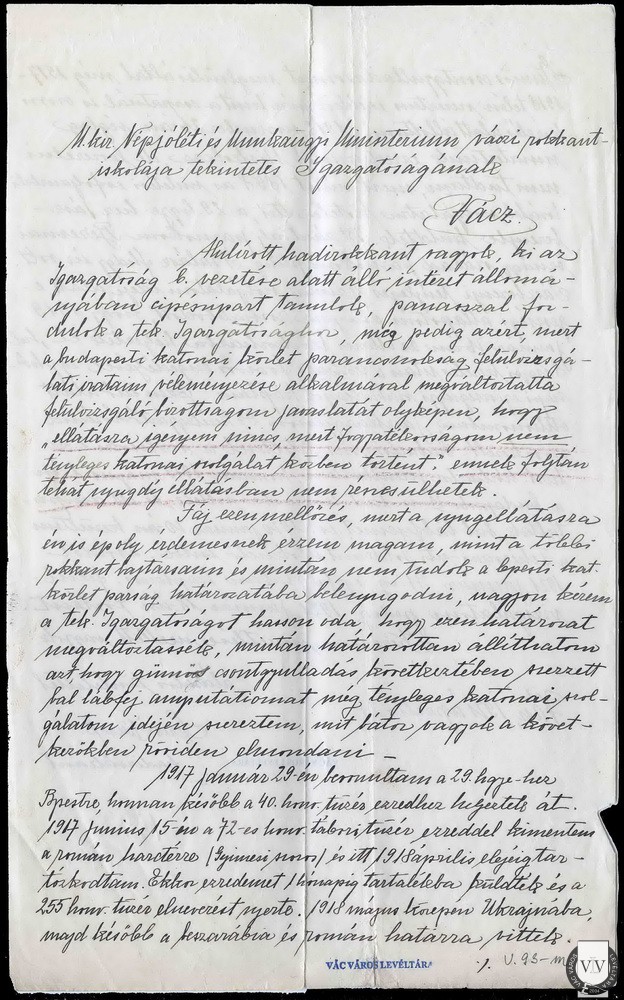 M. kir. Népjóléti és Munkaügyi Ministerium váczi rokkant-
iskolája tekintetes Igazgatóságának
Vácz.
Alulírott hadirokkant vagyok, ki az
Igazgatóság b. vezetése alatt álló intézet állomá-
nyában cipészipart tanulok, panasszal for-
dulok a tek. Igazgatósághoz, még pedig azért, mert
a budapesti katonai körlet parancsnokság felülvizsgá-
lati irataim véleményezése alkalmával megváltoztatta
felülvizsgáló bizottságom javaslatát olyképen, hogy
„ellátásra igényem nincs, mert fogyatékosságom nem
tényleges katonai szolgálat közben történt." ennek folytán
tehát nyugdíj ellátásban nem részesülhetek.
Fáj ezen mellőzés, mert a nyugellátásra
én is époly érdemesnek érzem magam, mint a többi
rokkant bajtársaim és mintán nem tudok a bpesti kat.
körlet parság határozatába belenyugodni, nagyon kérem
a tek. Igazgatóságot hasson oda, hogy ezen határozat
megváltoztassék, mintán határozottan állíthatom
azt, hogy gümős csontgyulladás következtében szerzett
bal lábfej amputátiomat még tényleges katonai szol-
gálatom idején szereztem, mit bátor vagyok a követ-
kezőkben röviden elmondani —
1917 január 29-én bevonultam a 29. hgye-hez
Bpestre, honnan később a 40. honv. tüzér ezredhez helyeztek át.
1917 junius 15-én a 72-es honv. tábori tüzér ezreddel kimentem
a román harctérre /Gyimesi szoros/ és itt 1918 április elejéig tar-
tózkodtam. Ekkor ezredemet 1 hónapig tartalékba küldték és a
255 honv. tüzér elnevezést nyerte. 1918 május közepén Ukrajnába,
majd később a beszarábia és román határra vittek.
VÁC VÁROS LEVÉLTÁRA
./. V. 93-
VÁC VÁROS LEVÉLTÁRA